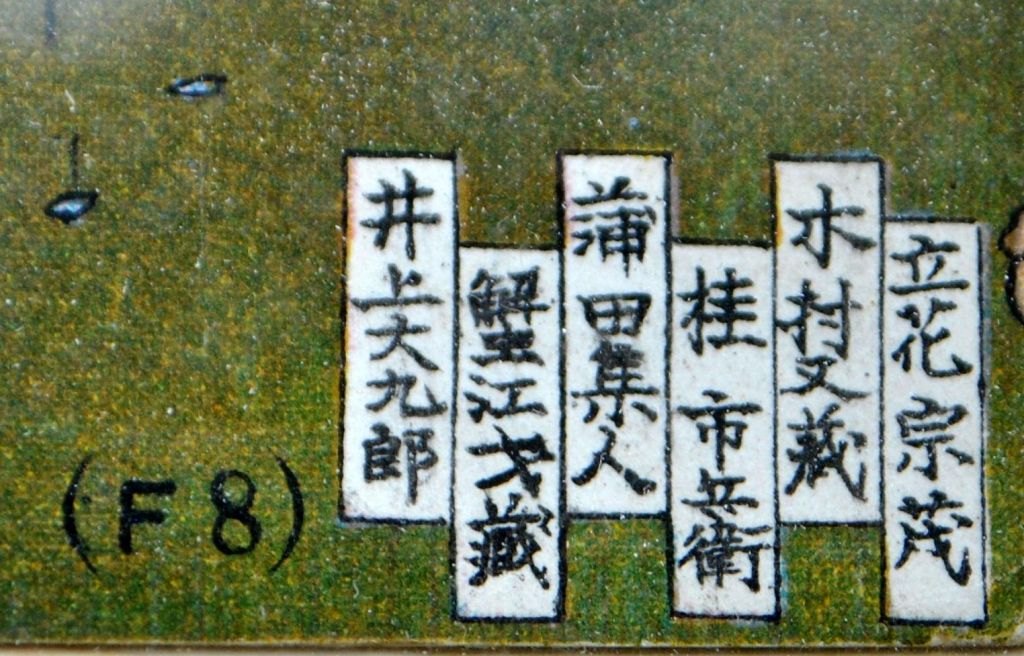 立花宗茂
木村又蔵
桂市兵衛
蒲田隼人
蟹江才蔵
井上大九郎
(F8)